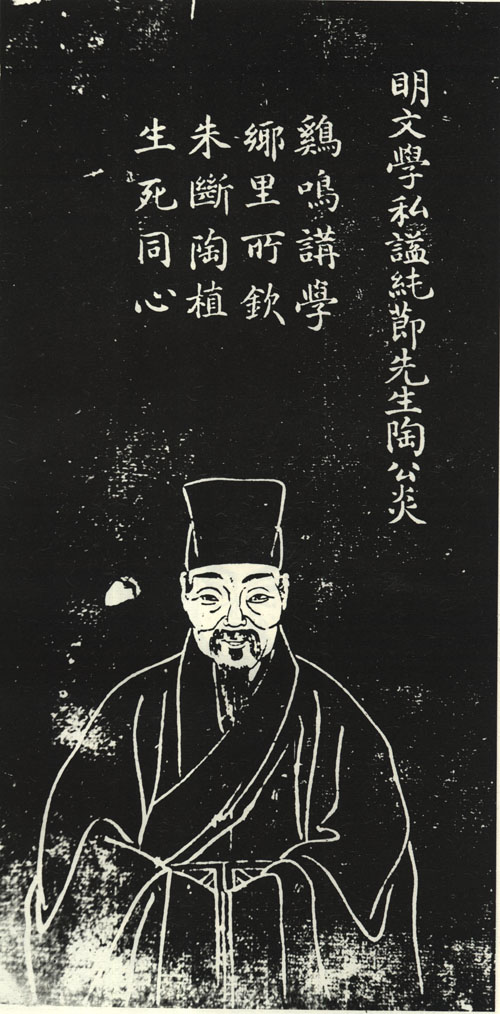 眀文學私諡純莭先生陶公炎
鷄鳴講學
郷里所欽
朱斷陶植
生死同心